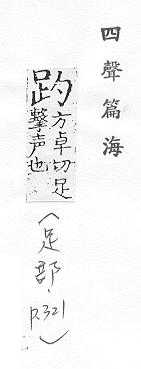 四聲篇海
趵
方卓切足
擊声也
(足部.p.321)